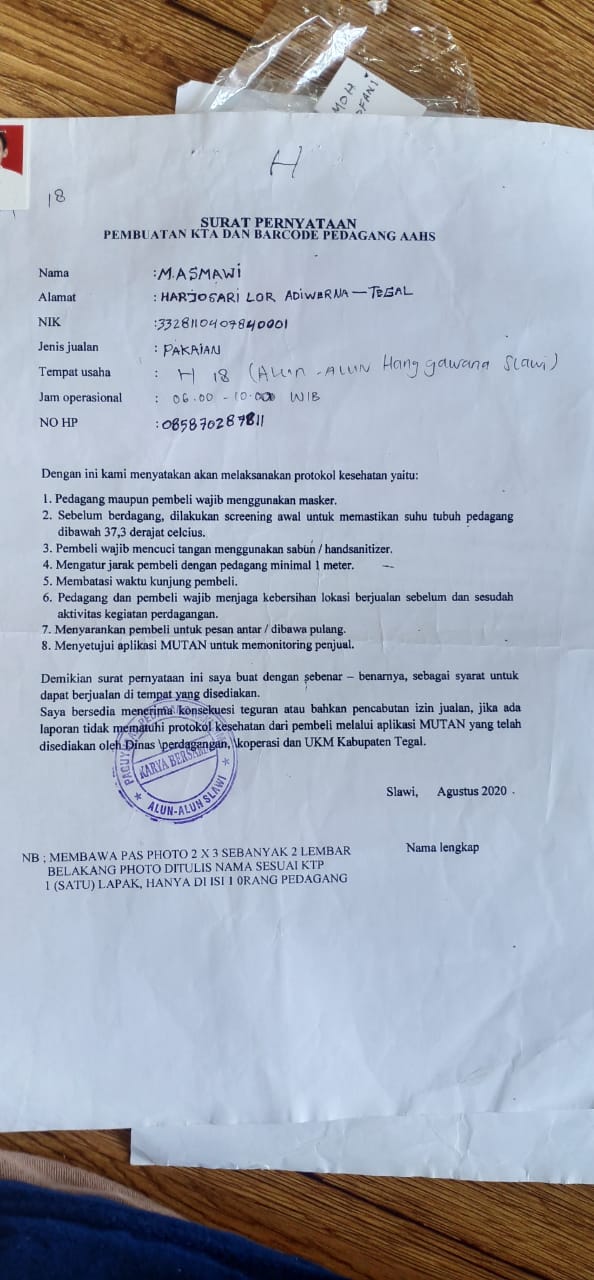 MOH
H
18
SURAT PERNYATAAN
PEMBUATAN KTA DAN BARCODE PEDAGANG AAHS
Nama : M.ASMAWI
Alamat : HARJOSARI LOR ADIWERNA - TEGAL
NIK : 3328110407840001
Jenis jualan : PAKAIAN
Tempat usaha : H 18 (ALUN-ALUN Hanggawana Slawi)
Jam operasional : 06.00 - 10.000 WIB
NO HP : 085870287811
Dengan ini kami menyatakan akan melaksanakan protokol kesehatan yaitu:
1. Pedagang maupun pembeli wajib menggunakan masker.
2. Sebelum berdagang, dilakukan screening awal untuk memastikan suhu tubuh pedagang
dibawah 37,3 derajat celcius.
3. Pembeli wajib mencuci tangan menggunakan sabun / handsanitizer.
4. Mengatur jarak pembeli dengan pedagang minimal 1 meter.
5. Membatasi waktu kunjung pembeli.
6. Pedagang dan pembeli wajib menjaga kebersihan lokasi berjualan sebelum dan sesudah
aktivitas kegiatan perdagangan.
7. Menyarankan pembeli untuk pesan antar / dibawa pulang.
8. Menyetujui aplikasi MUTAN untuk memonitoring penjual.
Demikian surat pernyataan ini saya buat dengan sebenar – benarnya, sebagai syarat untuk
dapat berjualan di tempat yang disediakan.
Saya bersedia menerima konsekuesi teguran atau bahkan pencabutan izin jualan, jika ada
laporan tidak mematuhi protokol kesehatan dari pembeli melalui aplikasi MUTAN yang telah
disediakan oleh Dinas \perdagangan, \koperasi dan UKM Kabupaten Tegal.
KARYA BERSAMA
★ ALUN-ALUN SLAWI ★
Slawi, Agustus 2020 .
Nama lengkap
NB ; MEMBAWA PAS PHOTO 2 X 3 SEBANYAK 2 LEMBAR
BELAKANG PHOTO DITULIS NAMA SESUAI KTP
1 (SATU) LAPAK, HANYA DI ISI 1 0RANG PEDAGANG